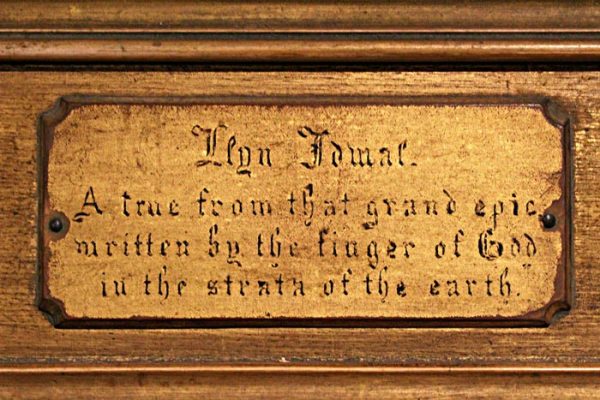 Llyn Idwal.
A true from that grand epic,
written by the finger of God
in the strata of the earth.